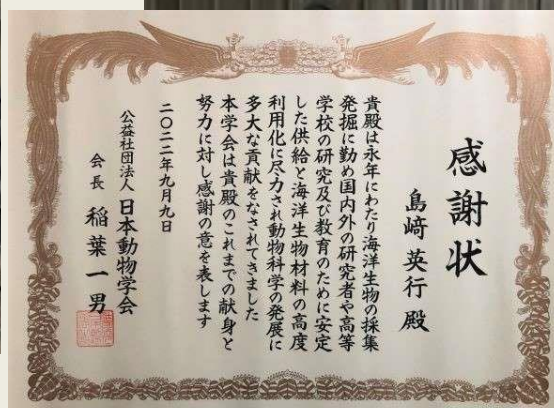 感謝状
島﨑英行 殿
貴殿は永年にわたり海洋生物の採集
発掘に勤め国内外の研究者や高等
学校の研究及び教育のために安定
した供給と海洋生物材料の高度
利用化に尽力され動物科学の発展に
多大な貢献をなされてきました
本学会は貴殿のこれまでの献身と
努力に対し感謝の意を表します
二〇二二年九月九日
公益社団法人 日本動物学会
会長 稲葉一男